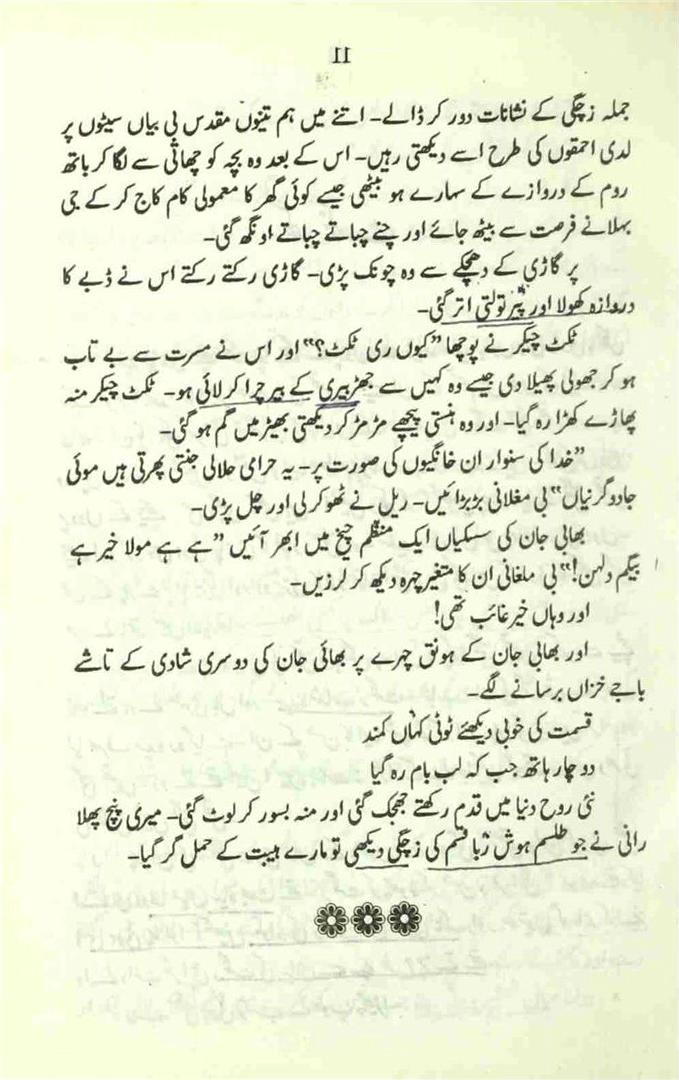 11
جملہ زچگی کے نشانات دور کر ڈالے۔ اتنے میں ہم تینوں مقدس بی بیاں سیٹوں پر
لدی احمقوں کی طرح اسے دیکھتی رہیں۔ اس کے بعد وہ بچہ کو چھاتی سے لگا کر باتھ
روم کے دروازے کے سہارے ہو بیٹھی جیسے کوئی گھر کا معمولی کام کاج کر کے جی
بہلانے فرصت سے بیٹھ جائے اور چنے چباتے چباتے اونگھ گئی۔
پر گاڑی کے دھچکے سے وہ چونک پڑی۔ گاڑی رکتے رکتے اس نے ڈبے کا
دروازہ کھولا اور پیر تولتی اتر گئی۔
ٹکٹ چیکر نے پوچھا ”کیوں ری ٹکٹ؟“ اور اس نے مسرت سے بے تاب
ہو کر جھولی پھیلا دی جیسے وہ کہیں سے جھڑبیری کے بیر چرا کر لائی ہو۔ ٹکٹ چیکر منہ
پھاڑے کھڑا رہ گیا۔ اور وہ ہنستی پیچھے مڑ مڑ کر دیکھتی بھیڑ میں گم ہو گئی۔
”خدا کی سنوار ان خانگیوں کی صورت پر۔ یہ حرامی حلالی جنتی پھرتی ہیں موئی
جادو گرنیاں“ بی مغلانی بڑبڑائیں۔ ریل نے ٹھوکر لی اور چل پڑی۔
بھابی جان کی سسکیاں ایک منظم چیخ میں ابھر آئیں ”ہے ہے مولا خیر ہے
بیگم دلہن!“ بی ملغانی ان کا متغیر چہرہ دیکھ کر لرزیں۔
اور وہاں خیر غائب تھی!
اور بھابی جان کے ہونق چہرے پر بھائی جان کی دوسری شادی کے تاشے
باجے خزاں برسانے لگے۔
قسمت کی خوبی دیکھئے ٹوٹی کہاں کمند
دو چار ہاتھ جب کہ لب بام رہ گیا
نئی روح دنیا میں قدم رکھتے جھجک گئی اور منہ بسور کر لوٹ گئی۔ میری پنچ پھلا
رانی نے جو طلسم ہوش ربا قسم کی زچگی دیکھی تو مارے ہیبت کے حمل گر گیا۔